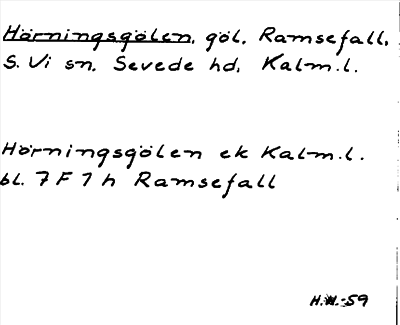 Hörningsgölen, göl, Ramsefall,
S. Vi sn, Sevede hd, Kalm.l.
Hörningsgölen ek Kalm.l.
bl. 7 F 1 h Ramsefall
H.W.-59